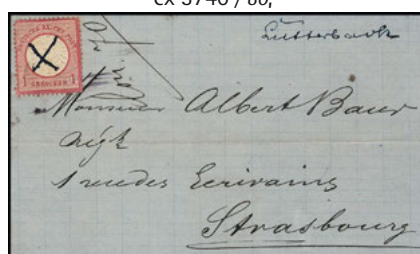 ex 3740 / 80,
Lutterbach
Monsieur Albert Baur
1 rue des Ecrivains
Strasbourg